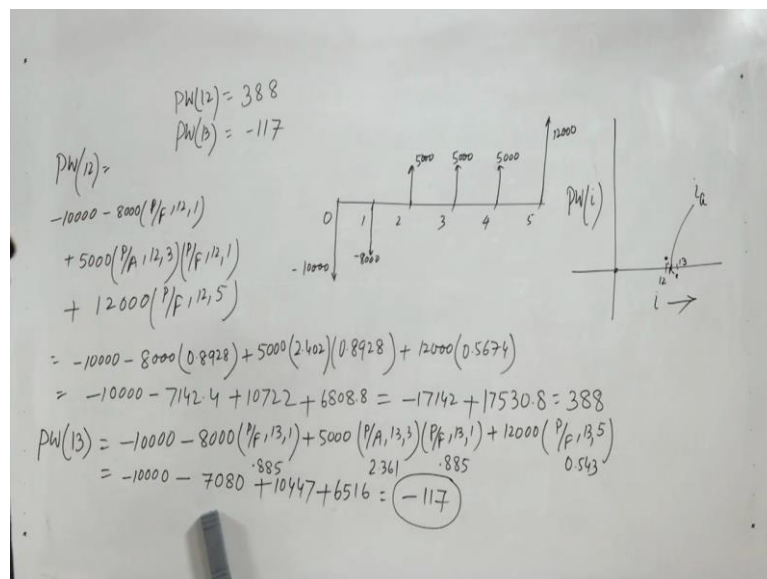 PW(12) = 388
PW(13) = -117
PW(12)=
-10000 - 8000(P/F, 12, 1)
+ 5000(P/A, 12, 3)(P/F, 12, 1)
+ 12000(P/F, 12, 5)
5000 5000 5000 12000
0 1 2 3 4 5
-10000 -8000
PW(i)
ia
12 13
i →
= -10000 - 8000(0.8928) + 5000(2.402)(0.8928) + 12000(0.5674)
= -10000 - 7142.4 + 10722 + 6808.8 = -17142 + 17530.8 = 388
PW(13) = -10000 - 8000(P/F, 13, 1) + 5000(P/A, 13, 3)(P/F, 13, 1) + 12000(P/F, 13, 5)
.885 2.361 .885 0.543
= -10000 - 7080 + 10447 + 6516 = -117